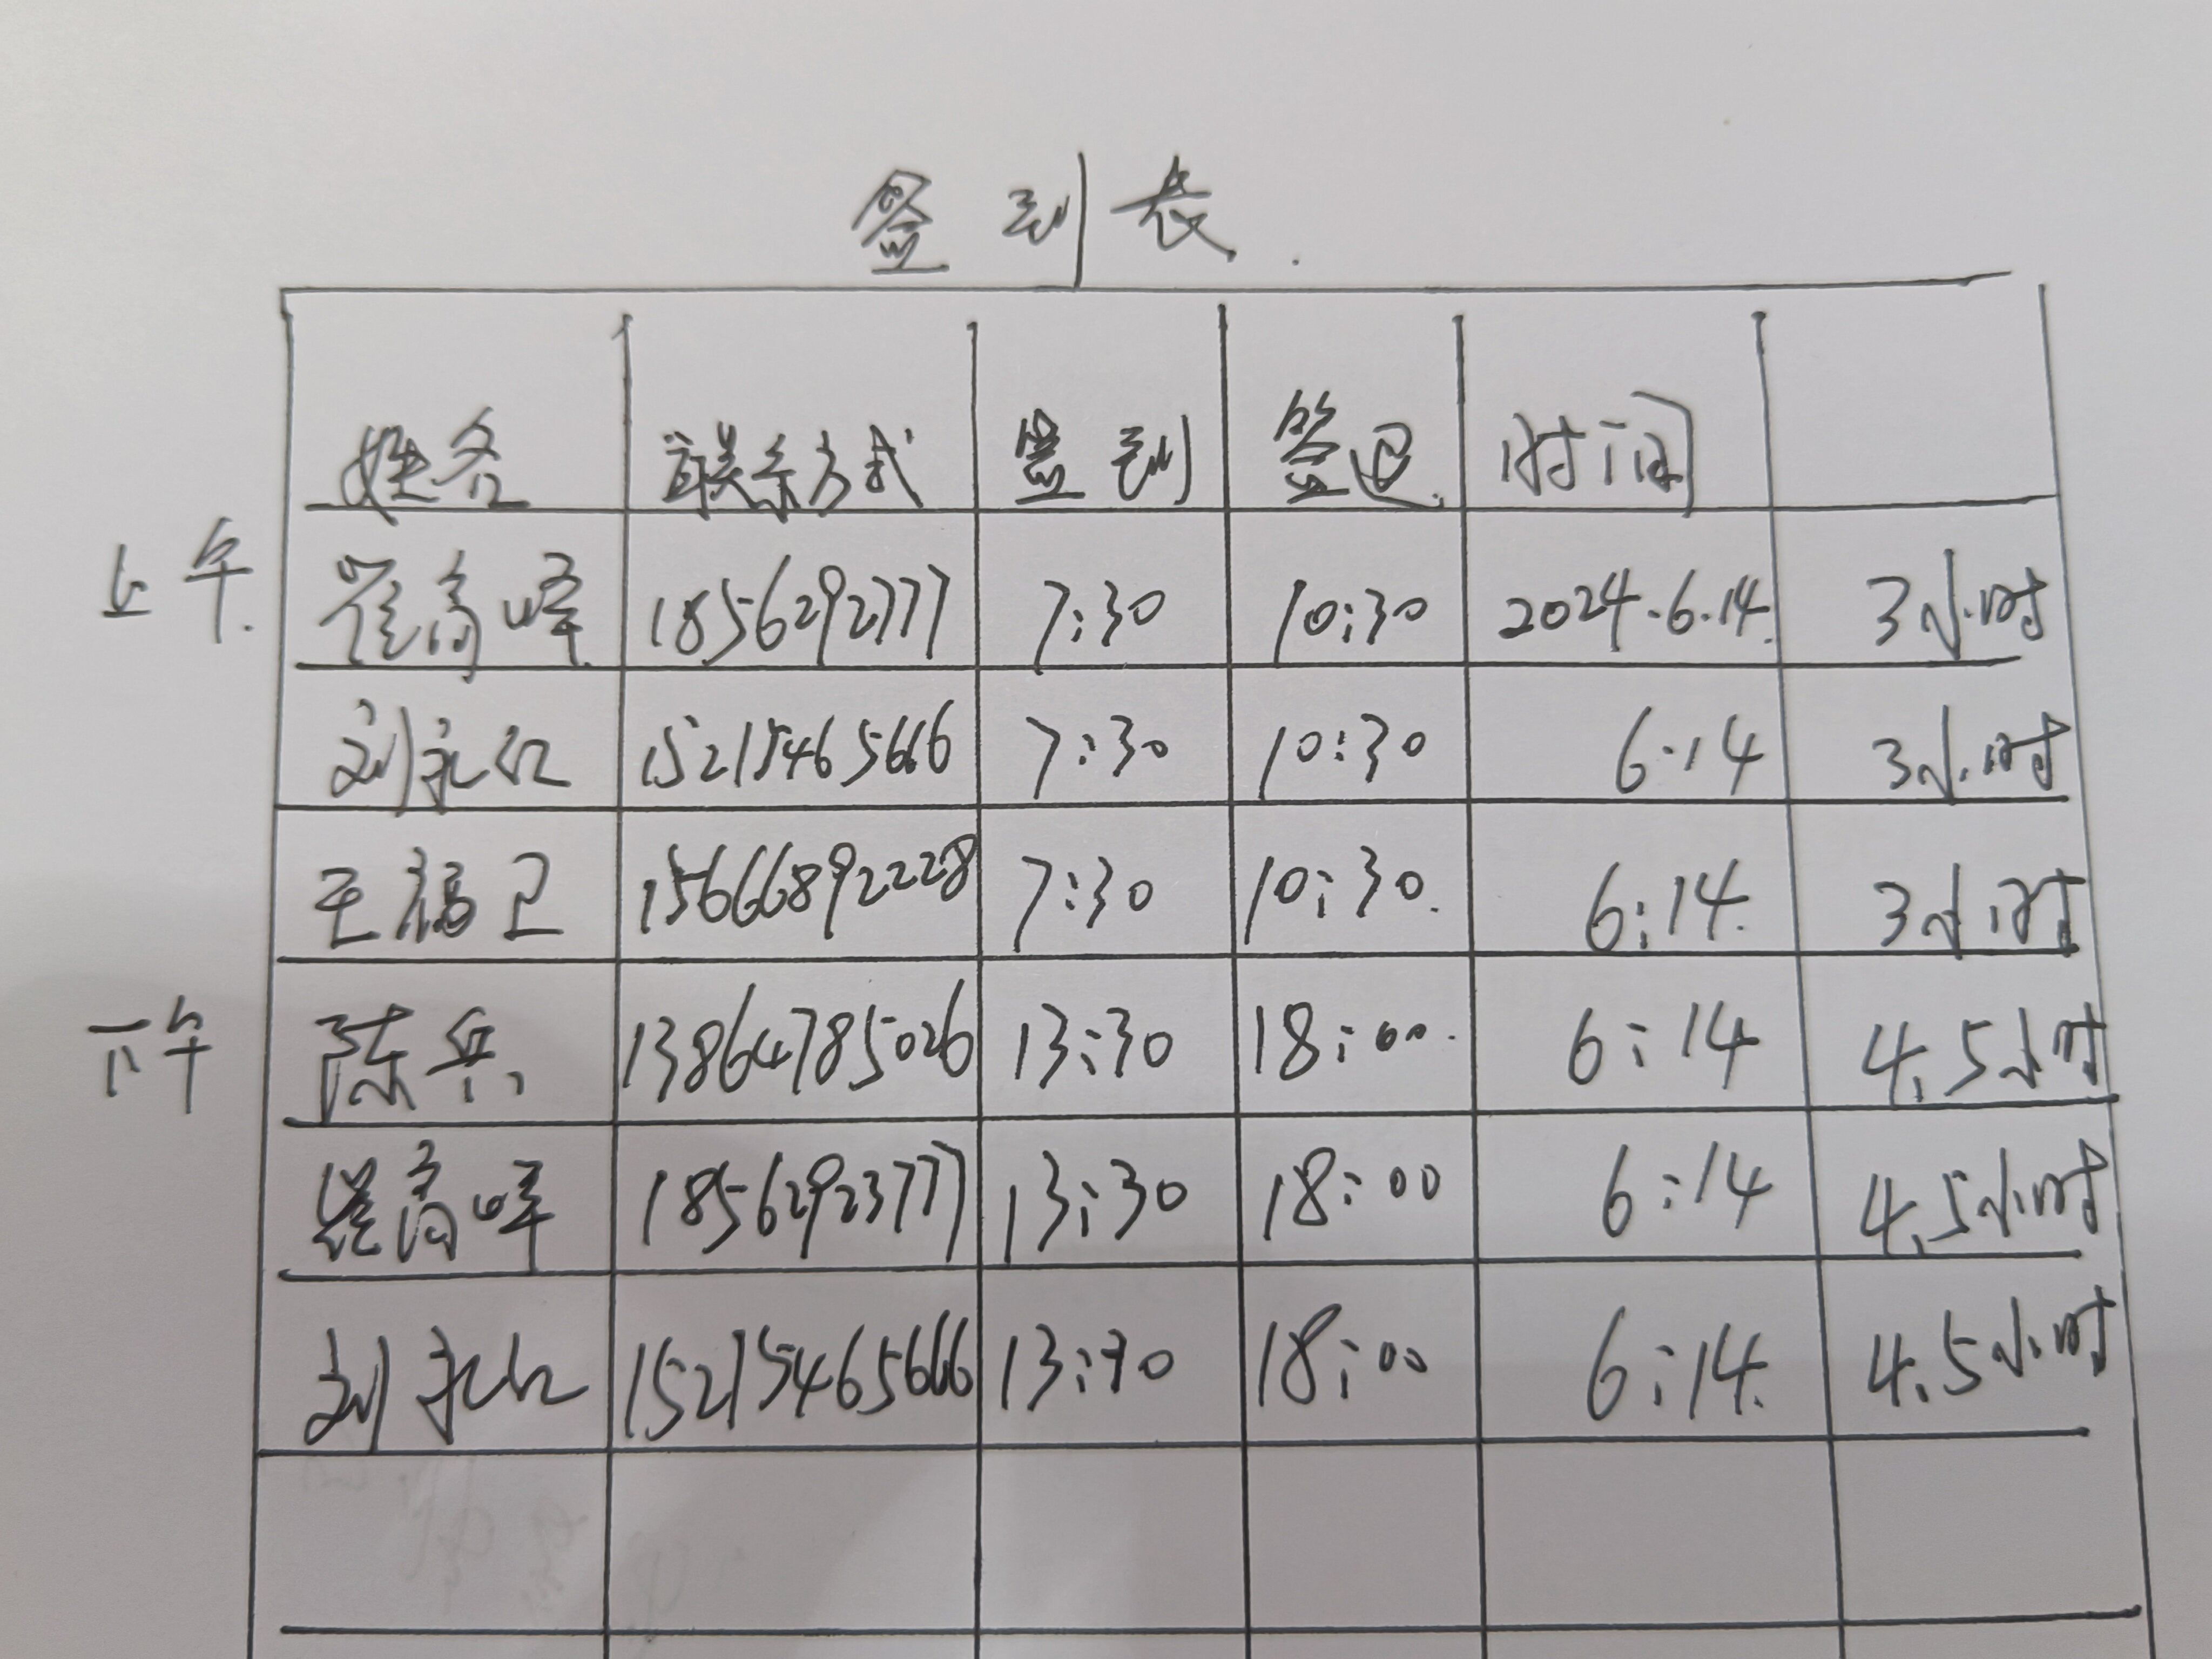 签到表.
姓名 联系方式 签到 签退 时间
上午. 崔高峰 1856292777 7:30 10:30 2024.6.14. 3小时
刘永仁 15215465666 7:30 10:30 6.14 3小时
王福卫 15666892228 7:30 10:30. 6:14. 3小时
下午 陈兵 13864785026 13:30 18:00. 6:14 4.5小时
崔高峰 18562923777 13:30 18:00 6:14 4.5小时
刘永仁 15215465666 13:30 18:00 6:14. 4.5小时